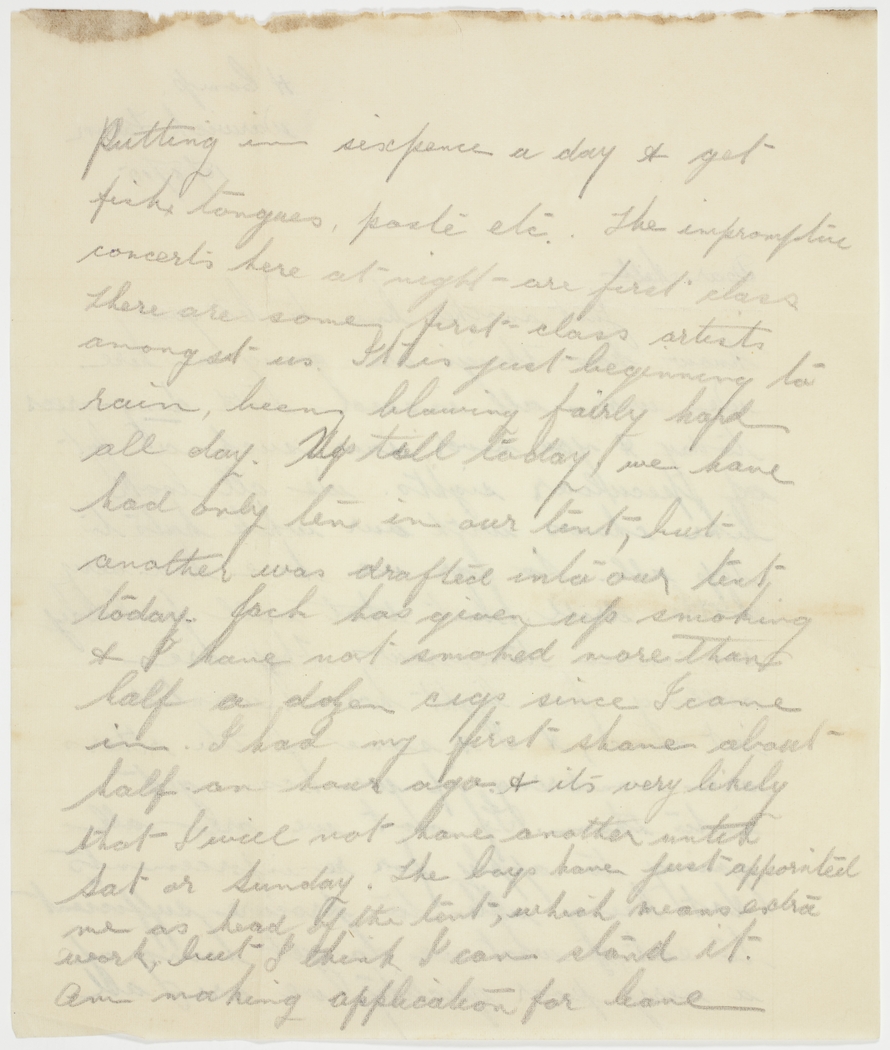 Putting in sixpence a day & get
fish, tongues, paste etc. The impromptue
concerts here at night are first class
There are some first-class artists
amongst us. It is just beginning to
rain, been blowing fairly hard
all day. Up till today, we have
had only ten in our tent, but
another was drafted into our tent
today. Jack has given up smoking
& I have not smoked more than
half a dozen cigs since I came
in. I had my first shave about
half an hour ago. & its very likely
that I will not have another until
Sat or Sunday. The boys have just appointed
me as head of the tent, which means extra
work, but I think I can stand it.
Am making application for leave